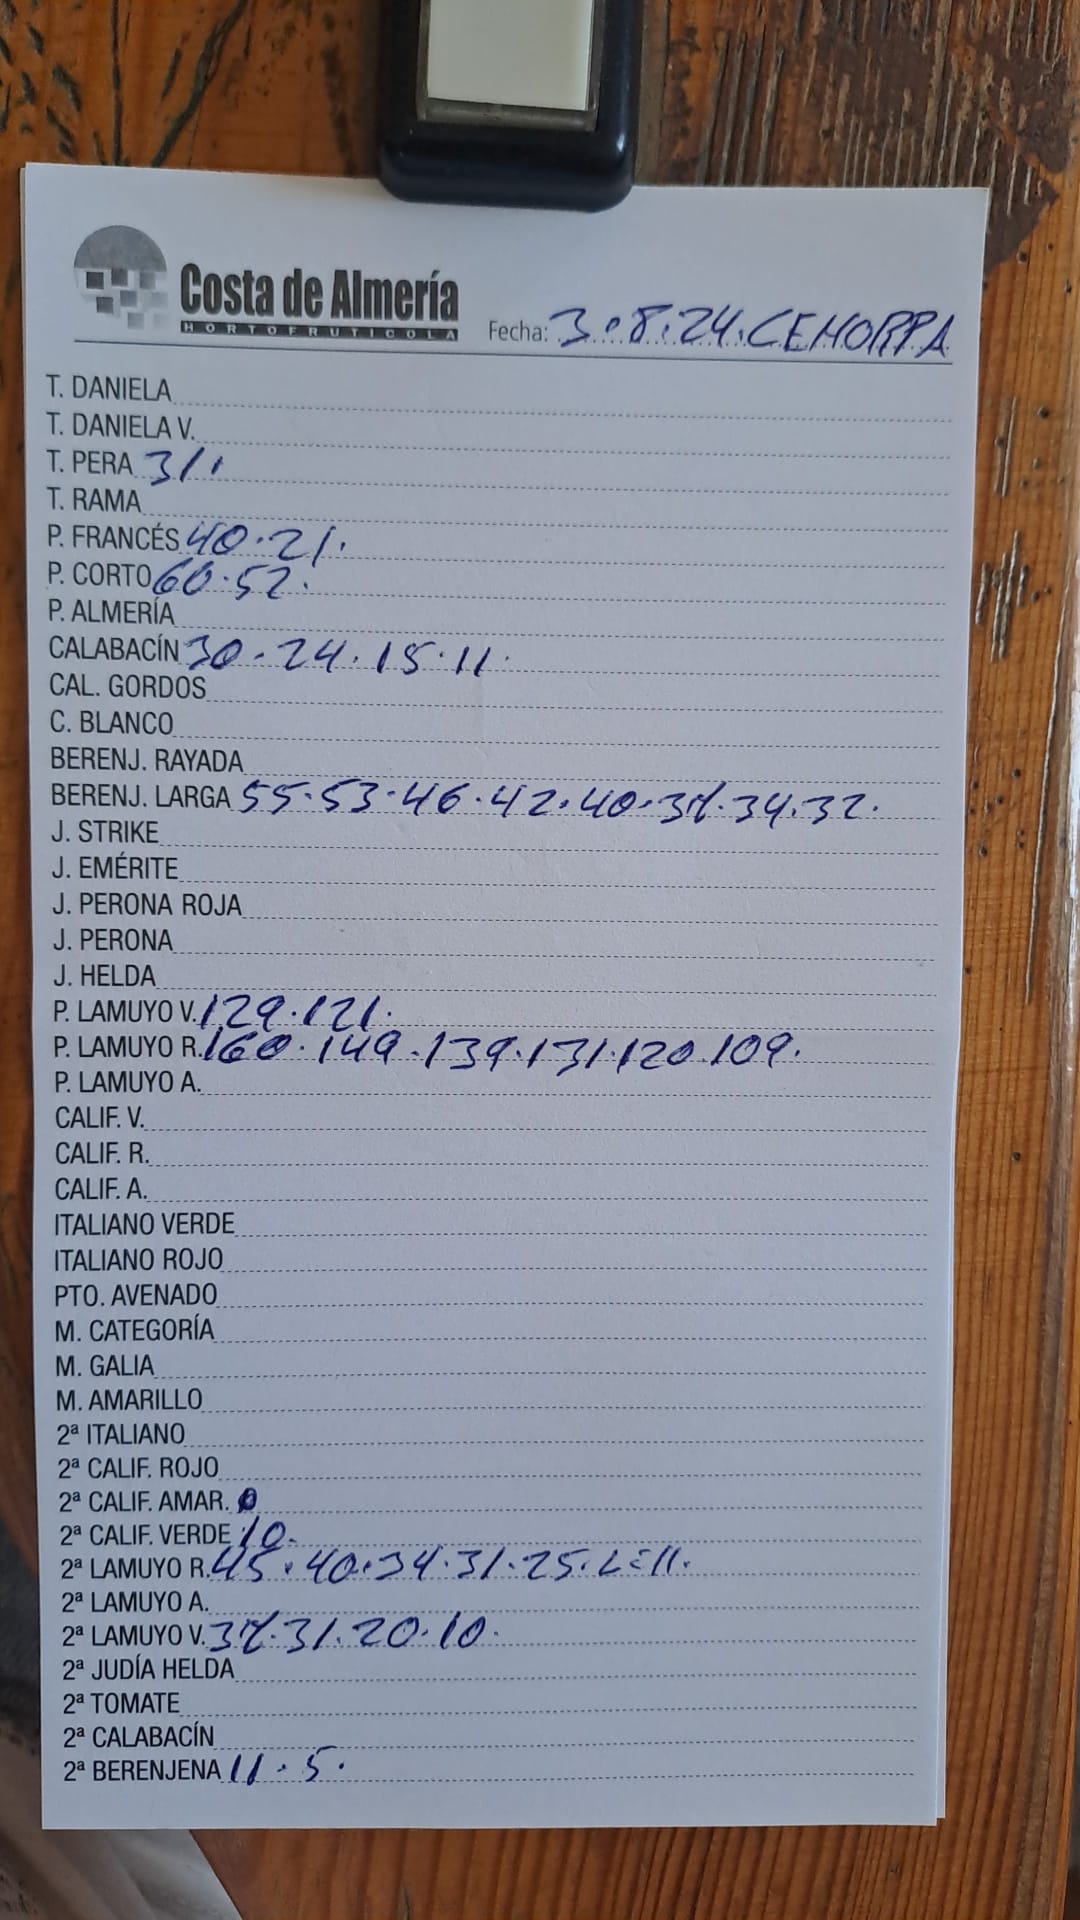 Costa de Almería
HORTOFRUTICOLA
Fecha: 3.8.24. CEHORPA
T. DANIELA
T. DANIELA V.
T. PERA 31.
T. RAMA
P. FRANCÉS 40.21.
P. CORTO 60.52.
P. ALMERÍA
CALABACÍN 30.24.15.11.
CAL. GORDOS
C. BLANCO
BERENJ. RAYADA
BERENJ. LARGA 55.53.46.42.40.37.34.32.
J. STRIKE
J. EMÉRITE
J. PERONA ROJA
J. PERONA
J. HELDA
P. LAMUYO V. 129.121.
P. LAMUYO R. 160.149.139.131.120.109.
P. LAMUYO A.
CALIF. V.
CALIF. R.
CALIF. A.
ITALIANO VERDE
ITALIANO ROJO
PTO. AVENADO
M. CATEGORÍA
M. GALIA
M. AMARILLO
2ª ITALIANO
2ª CALIF. ROJO
2ª CALIF. AMAR.
2ª CALIF. VERDE 10.
2ª LAMUYO R. 45.40.34.31.25.L=11.
2ª LAMUYO A.
2ª LAMUYO V. 37.31.20.10.
2ª JUDÍA HELDA
2ª TOMATE
2ª CALABACÍN
2ª BERENJENA 11.5.